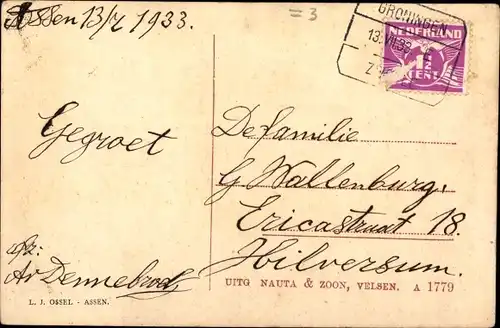 Assen 13/7 1933.
= 3
GRONINGEN
13.VII.33
NEDERLAND
1½
CENT
Gegroet
De familie
G Wallenburg.
Ericastraat 18.
Hilversum.
Afz:
Dennebroek
L. J. OSSEL - ASSEN.
UITG NAUTA & ZOON, VELSEN. A 1779